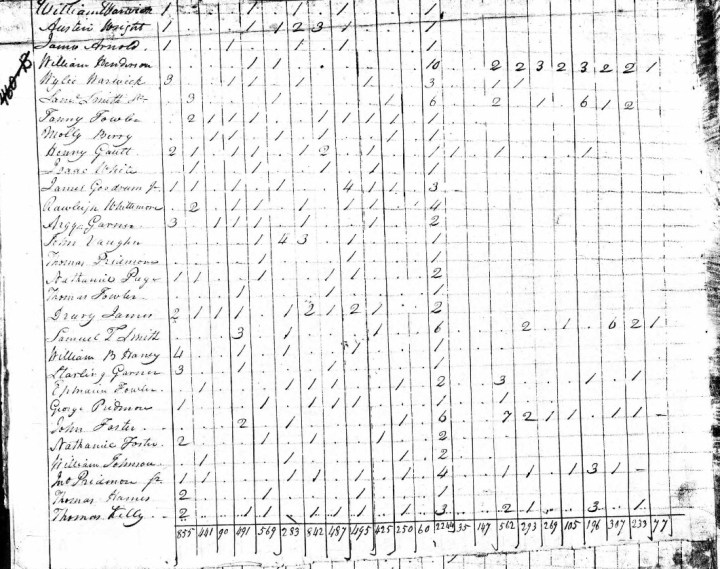 William Warwick 1 1 1 1 1
Austin Wright 1 1 1 2 3 1 1
James Arnold 1 1 1 1 1
William Henderson 1 1 1 10 2 2 3 2 3 2 2 1
Wylie Warwick 3 1 1 1 1 3 1 1
Saml Smith 3 1 1 1 6 2 1 6 1 2
Fanny Fowler 2 1 1 1 1 1 1 1 1
Molly Berry 1 1 1 1 1 1 1
Henry Gautt 2 1 1 1 1 2 1 1 1 1 1
Isaac White 1 1 1 1 1
James Goodrum Jr 1 1 1 1 4 1 1 3
Rawleigh Whittemore 2 1 1 1 1 1 4
Garner 3 1 1 1 1 1 1 2
John Vaughn 1 4 3 1 1
Thomas 1 1 1
Nathaniel Page 1 1 1 1 1 2
Thomas Fowler 1 1 1 1
Drury James 2 1 1 1 1 2 1 2 1 2
Samuel T Smith 3 1 1 6 2 1 6 2 1
William B Haney 4 1 1 1 1
Starling Garner 3 1 1 1
Ephraim Fowler 1 1 1 1 1 2 3 1 1
George 1 1 1 1 1 1
John Foster 2 1 1 6 7 2 1 1 1 1 1
Nathaniel Foster 2 1 1 1 1 2
William Johnson 1 1 1 2
Jno Jr 1 1 1 1 1 1 1 4 1 1 1 3 1
Thomas 2 1 1 1 1
Thomas Kelly 2 1 1 1 1 3 2 1 3 1
855 441 90 491 569 283 842 487 495 425 250 60 2244 35 147 562 293 269 105 196 307 233 77